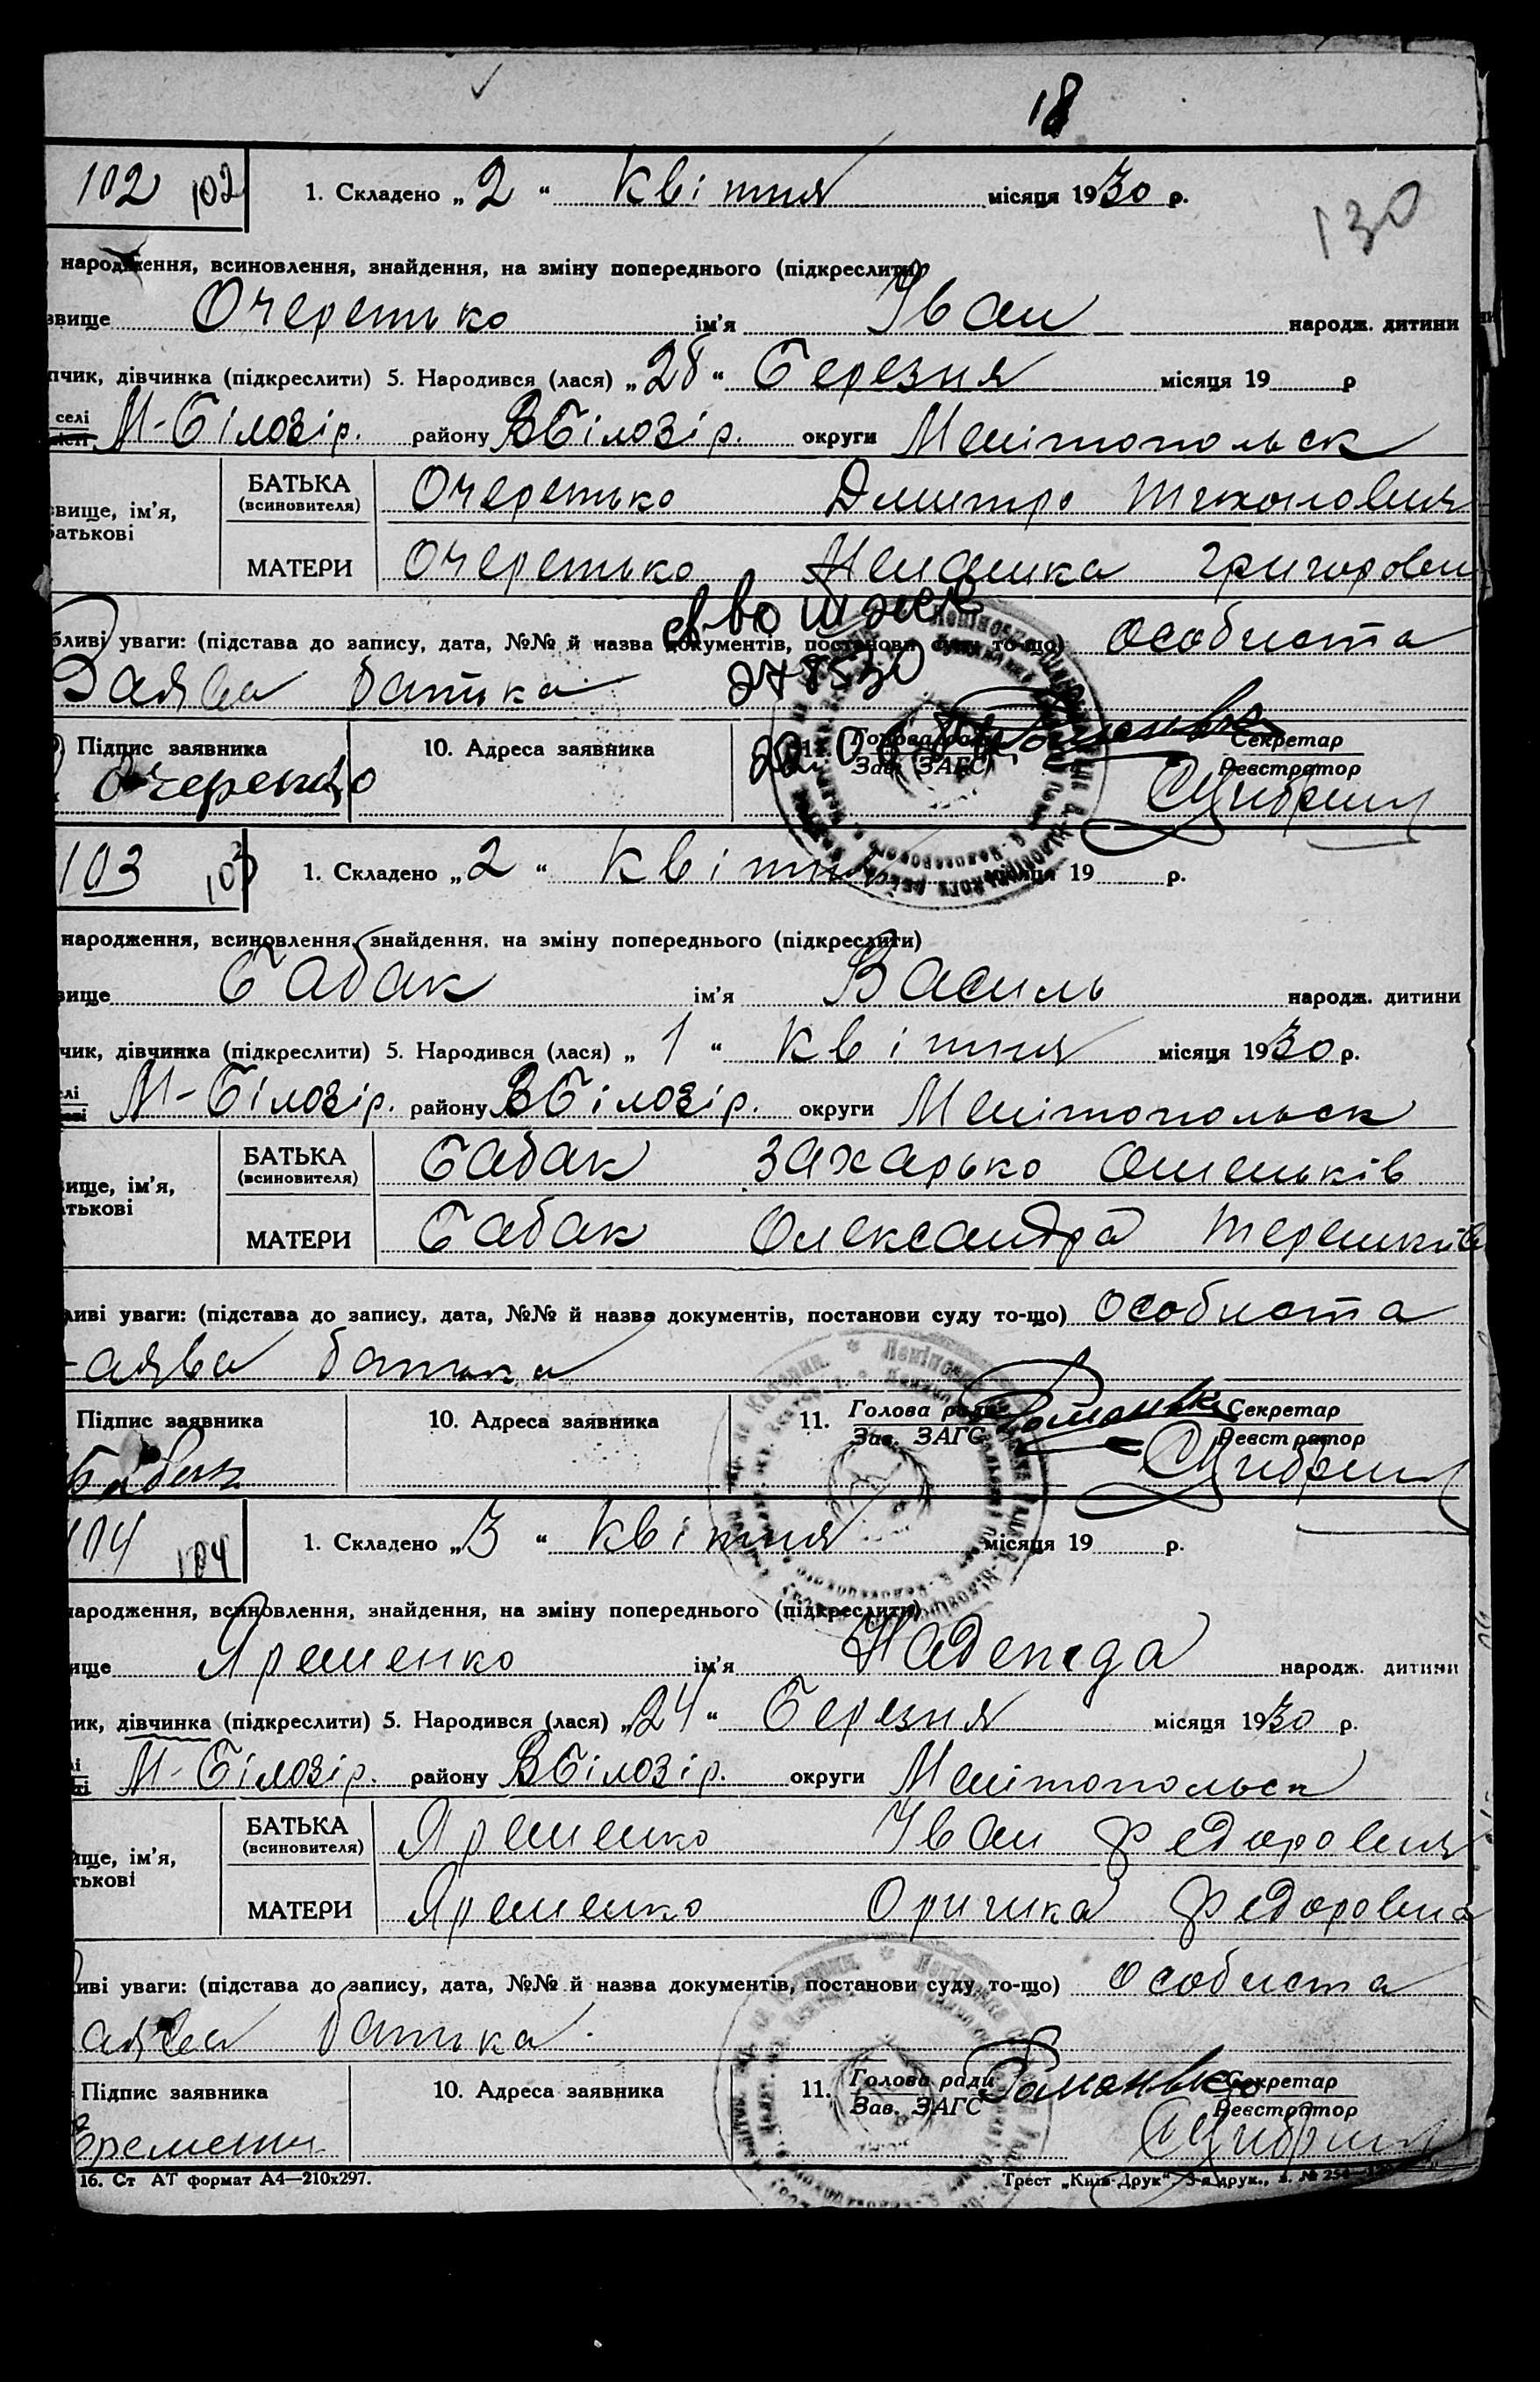 18
102 102 1. Складено „2“ Квітня місяця 1930 р.
130
народження, всиновлення, знайдення, на зміну попереднього (підкреслити)
звище Очеретько ім'я Іван народж. дитини
пчик, дівчинка (підкреслити) 5. Народився (лася) „28“ Березня місяця 19 р
селі М-Білозір. району ВБілозір. округи Мелітопольск
БАТЬКА (всиновителя) Очеретько Дмитро
звище, ім'я, батькові
МАТЕРИ Очеретько Меланка Григоровн
бливі уваги: (підстава до запису, дата, №№ й назва документів, постанови суду то-що) особиста
Заява батька
Підпис заявника 10. Адреса заявника 11. Голова ради Зав. ЗАГС Секретар Реєстратор
Очеретько
103 103 1. Складено „2“ Квітня місяця 19 р.
народження, всиновлення, знайдення, на зміну попереднього (підкреслити)
вище Бабак ім'я Василь народж. дитини
чик, дівчинка (підкреслити) 5. Народився (лася) „1“ Квітня місяця 1930 р.
елі М-Білозір. району ВБілозір. округи Мелітопольск
БАТЬКА (всиновителя) Бабак Захарько Омельків
вище, ім'я, атькові
МАТЕРИ Бабак Олександра
ливі уваги: (підстава до запису, дата, №№ й назва документів, постанови суду то-що) особиста
аява батька
Підпис заявника 10. Адреса заявника 11. Голова ради Зав. ЗАГС Секретар Реєстратор
Бабак
104 104 1. Складено „3“ Квітня місяця 19 р.
народження, всиновлення, знайдення, на зміну попереднього (підкреслити)
ище Яременко ім'я Надежда народж. дитини
ик, дівчинка (підкреслити) 5. Народився (лася) „24“ Березня місяця 1930 р.
лі М-Білозір. району ВБілозір. округи Мелітопольск
БАТЬКА (всиновителя) Яременко Іван Федорович
ище, ім'я, тькові
МАТЕРИ Яременко Оришка Федоровна
иві уваги: (підстава до запису, дата, №№ й назва документів, постанови суду то-що) особиста
аява батька
Підпис заявника 10. Адреса заявника 11. Голова ради Зав. ЗАГС Секретар Реєстратор
16. Ст АТ формат А4—210х297. Трест „Київ-Друк“, 3-я друк.,